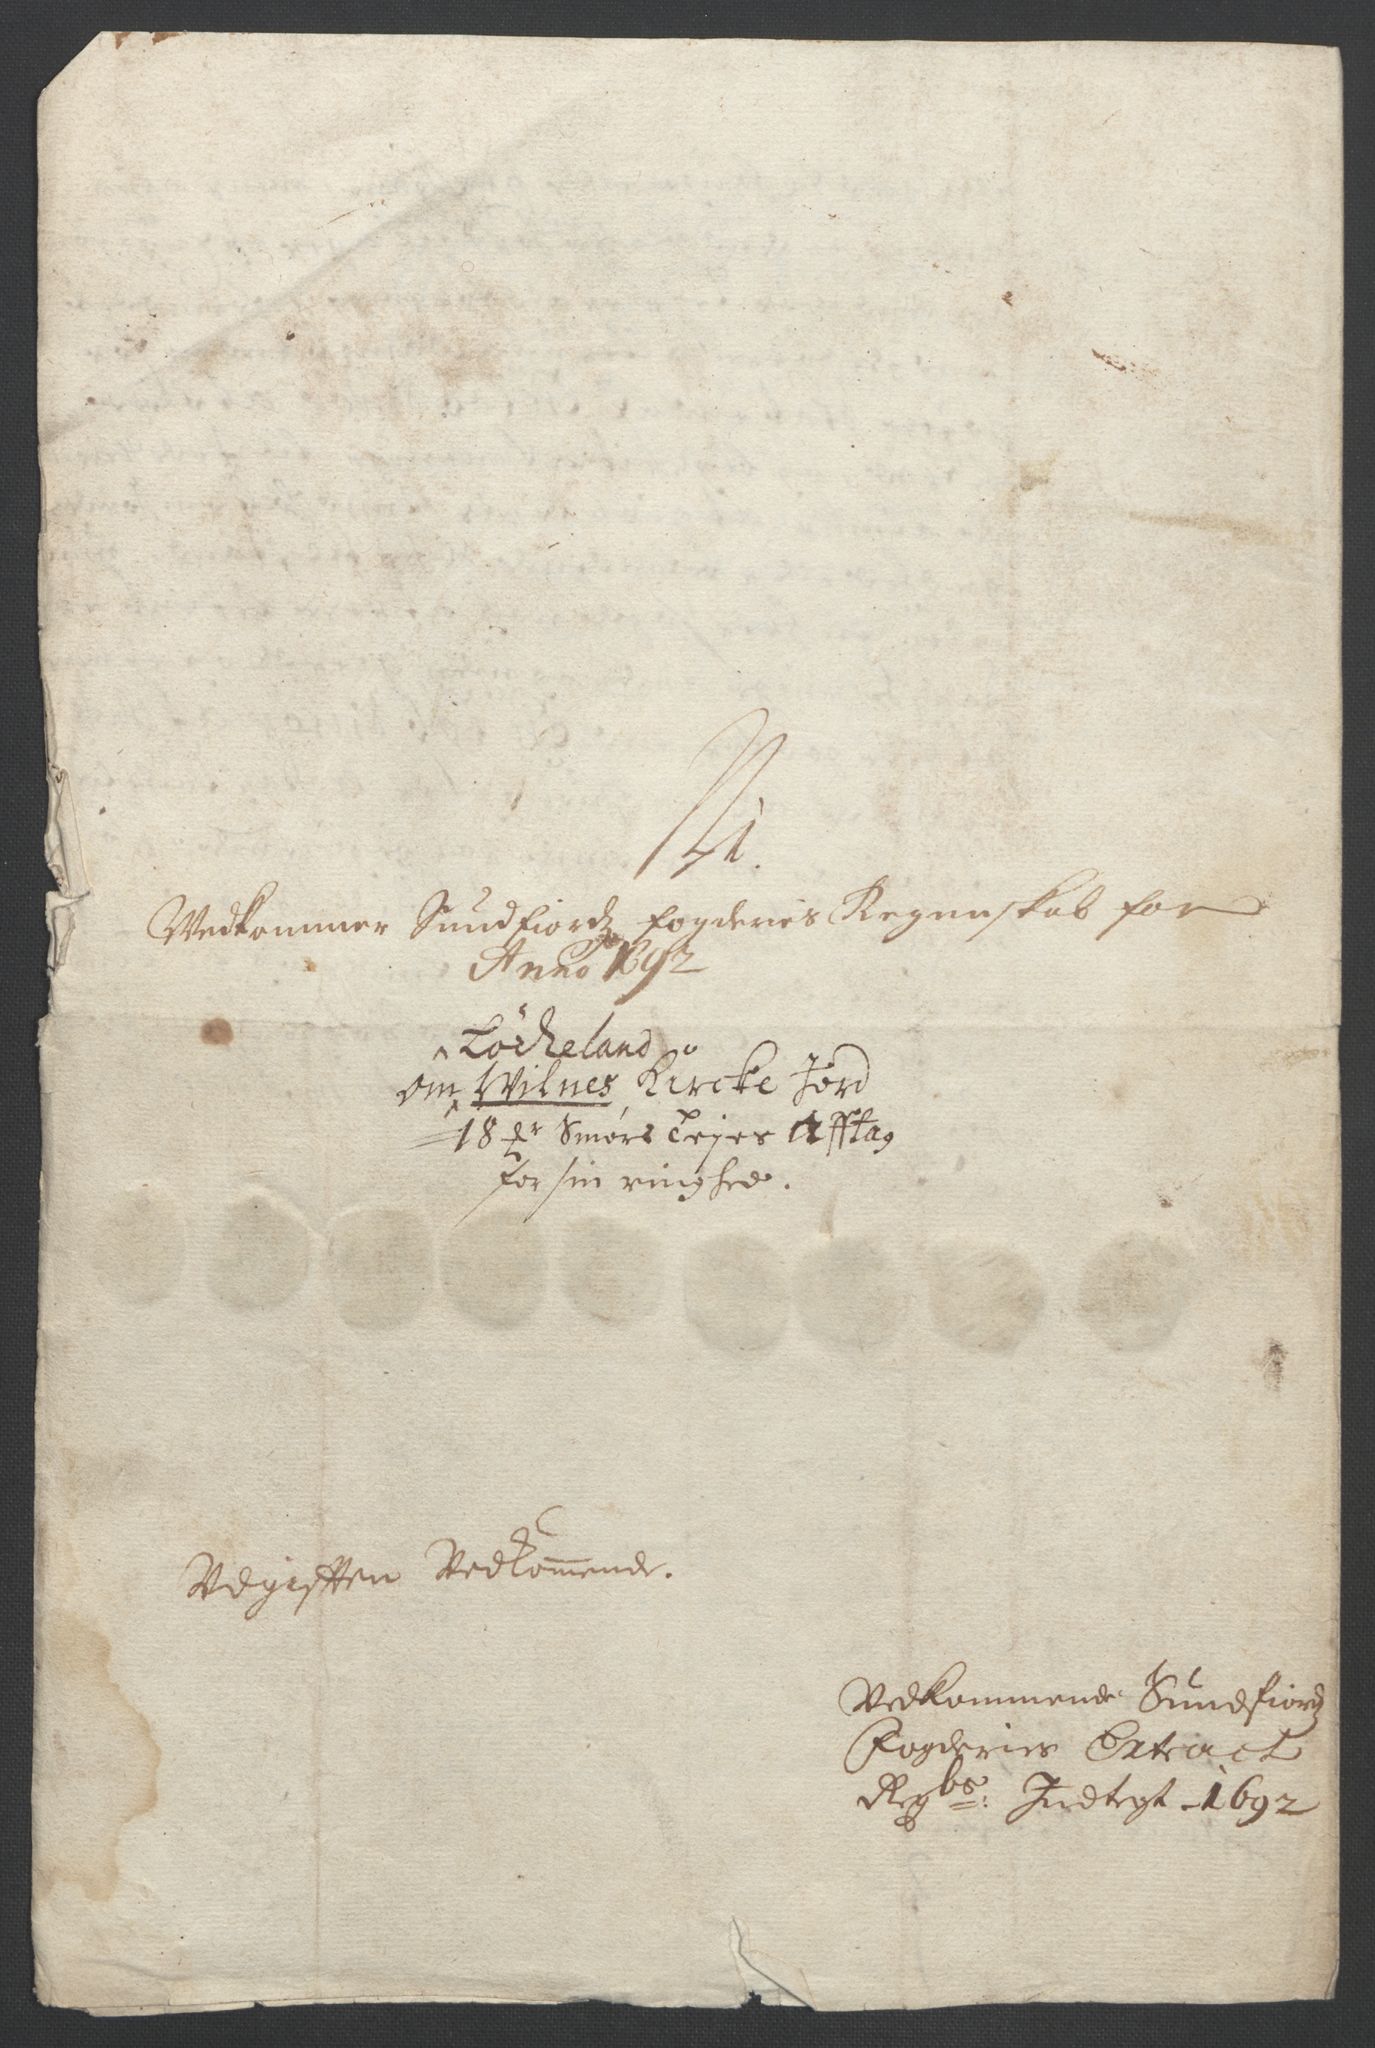 N 1.
Vedkommer Sundfiordz fogderies Regenskab for
Anno 1692
Löckeland
om Wilnes Kircke Jord
18 Smørs Lejes Afftag
for sin ringhed.
Udgifften Vedkommende.
Vedkommende Sundfiordz
Fogderies Extract
Regbs: Indtegt 1692